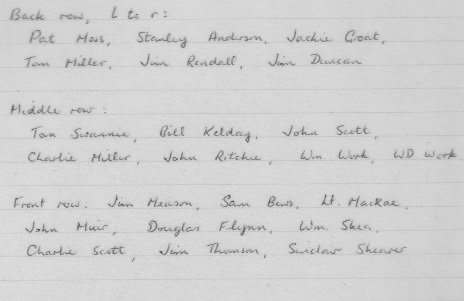 Back row, L to r:
Pat Moss, Stanley Anderson, Jackie Groat,
Tom Miller, Jim Rendall, Jim Duncan
Middle row:
Tom Swannie, Bill Kelday, John Scott,
Charlie Miller, John Ritchie, Wm Work, WD Work
Front row. Jim Meason, Sam Bews, Lt. MacRae,
John Muir, Douglas Flynn, Wm. Shea,
Charlie Scott, Jim Thomson, Sinclair Shearer